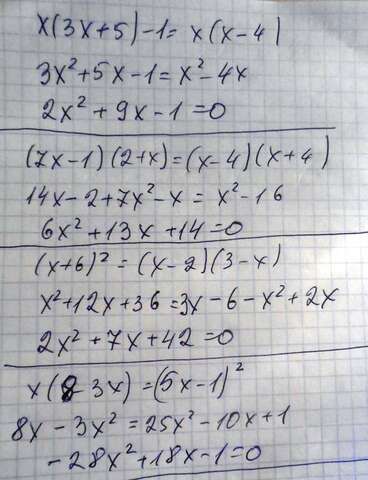 x(3x+5)-1=x(x-4)
3x²+5x-1=x²-4x
2x²+9x-1=0
(7x-1)(2+x)=(x-4)(x+4)
14x-2+7x²-x=x²-16
6x²+13x+14=0
(x+6)²=(x-2)(3-x)
x²+12x+36=3x-6-x²+2x
2x²+7x+42=0
x(8-3x)=(5x-1)²
8x-3x²=25x²-10x+1
-28x²+18x-1=0